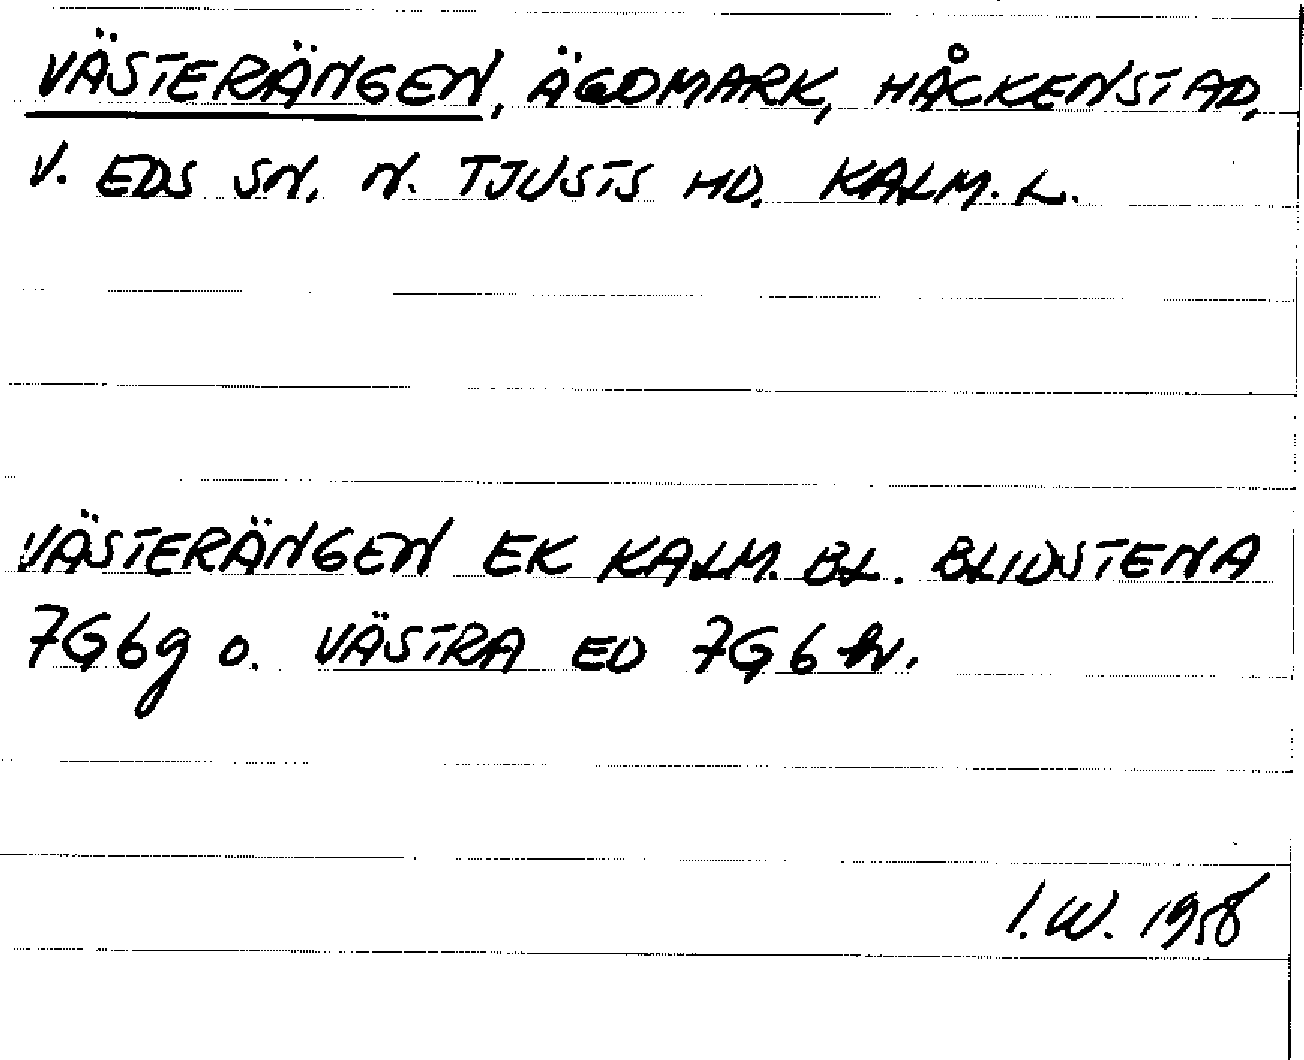 VÄSTERÄNGEN, ÄGOMARK, HÅCKENSTAD,
V. EDS SN. N. TJUSTS HD. KALM. L.
VÄSTERÄNGEN EK KALM. BL. BLIDSTENA
7G6g o. VÄSTRA ED 7G6h.
I.W. 1958